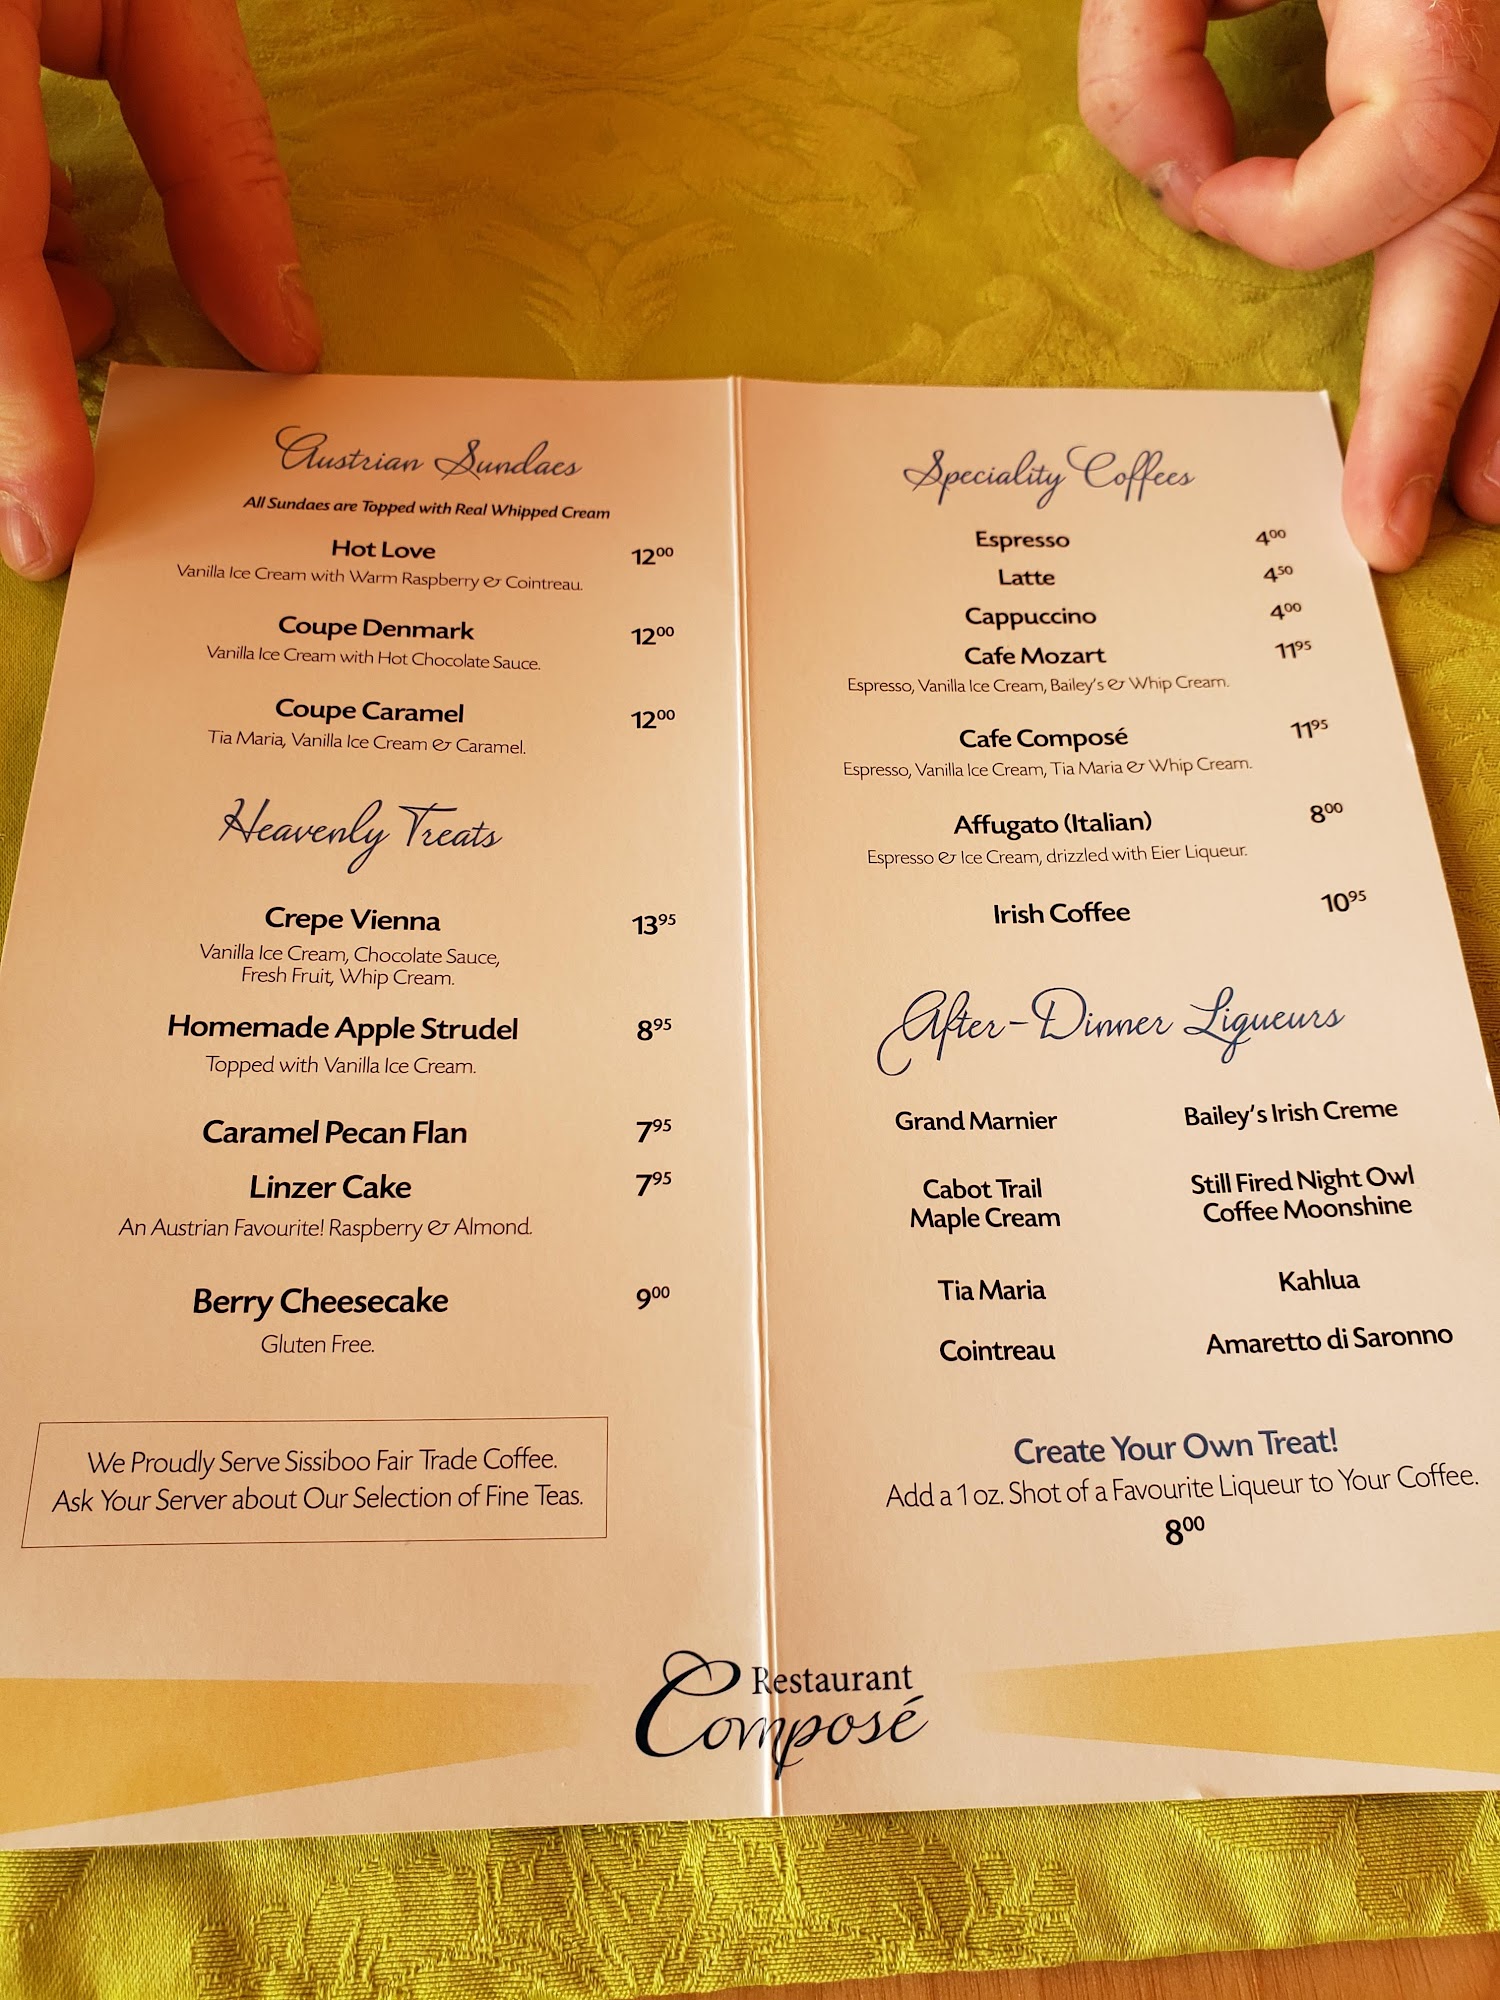 Austrian Sundaes
All Sundaes are Topped with Real Whipped Cream
Hot Love 12⁰⁰
Vanilla Ice Cream with Warm Raspberry & Cointreau.
Coupe Denmark 12⁰⁰
Vanilla Ice Cream with Hot Chocolate Sauce.
Coupe Caramel 12⁰⁰
Tia Maria, Vanilla Ice Cream & Caramel.
Heavenly Treats
Crepe Vienna 13⁹⁵
Vanilla Ice Cream, Chocolate Sauce,
Fresh Fruit, Whip Cream.
Homemade Apple Strudel 8⁹⁵
Topped with Vanilla Ice Cream.
Caramel Pecan Flan 7⁹⁵
Linzer Cake 7⁹⁵
An Austrian Favourite! Raspberry & Almond.
Berry Cheesecake 9⁰⁰
Gluten Free.
We Proudly Serve Sissiboo Fair Trade Coffee.
Ask Your Server about Our Selection of Fine Teas.
Speciality Coffees
Espresso 4⁰⁰
Latte 4⁵⁰
Cappuccino 4⁰⁰
Cafe Mozart 11⁹⁵
Espresso, Vanilla Ice Cream, Bailey's & Whip Cream.
Cafe Composé 11⁹⁵
Espresso, Vanilla Ice Cream, Tia Maria & Whip Cream.
Affugato (Italian) 8⁰⁰
Espresso & Ice Cream, drizzled with Eier Liqueur.
Irish Coffee 10⁹⁵
After-Dinner Liqueurs
Grand Marnier Bailey's Irish Creme
Cabot Trail Still Fired Night Owl
Maple Cream Coffee Moonshine
Tia Maria Kahlua
Cointreau Amaretto di Saronno
Create Your Own Treat!
Add a 1 oz. Shot of a Favourite Liqueur to Your Coffee.
8⁰⁰
Restaurant
Composé